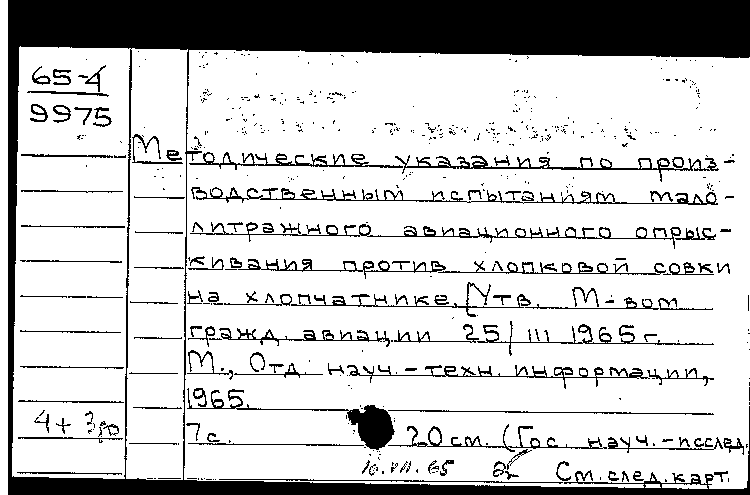 65-4
9975
Методические указания по произ-
водственным испытаниям мало-
литражного авиационного опрыс-
кивания против хлопковой совки
на хлопчатнике. [Утв. М-вом
гражд. авиации 25/III 1965 г.
М., Отд. науч.-техн. информации,
1965.
7 с. 20 см. (Гос. науч.-исслед.
4+3
10.VII.65 См. след. карт.